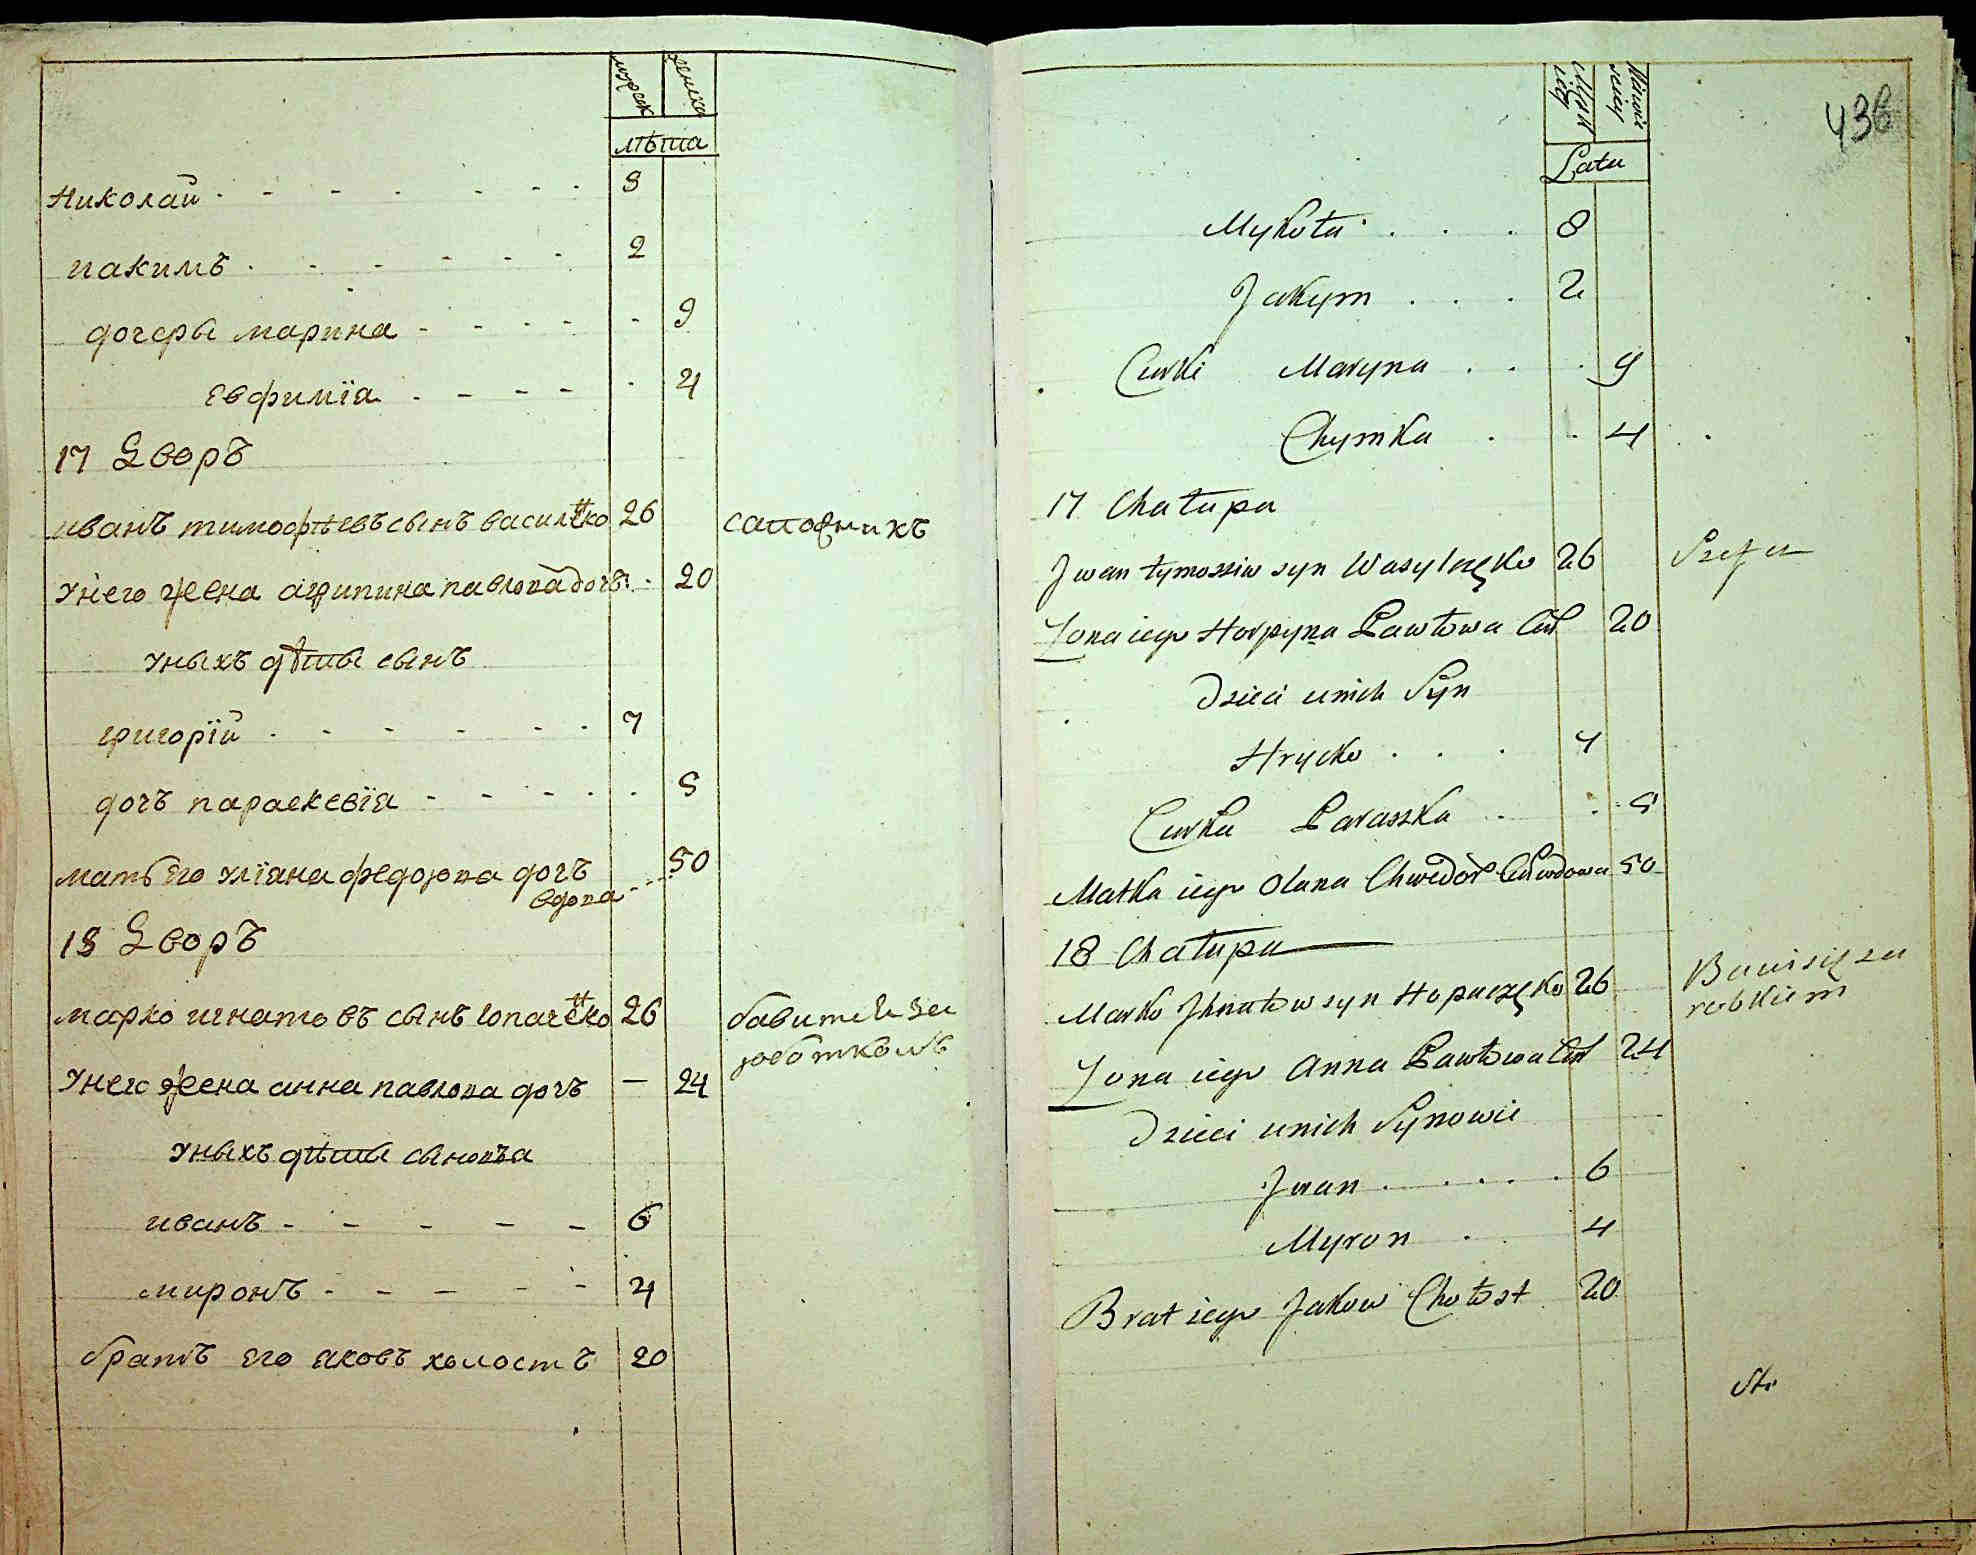 мужск женска
лѣта
николай - - - - - - - 8
иакимъ - - - - - - 2
дочеры марина - - - - - 9
евфимїа - - - - - 4
17 Дворъ
иванъ тимофѣевъ сынъ василенко 26 сапожникъ
У него жена агрипина павлова дочъ - 20
У ныхъ дѣты сынъ
григорїй - - - - - - 7
дочъ параскевїа - - - - - 5
мать его улїана федорова дочъ 50
вдова
18 Дворъ
марко игнатовъ сынъ гопаченко 26 бавитси за
У него жена анна павлова дочъ — 24 роботкомъ
У ныхъ дѣты сыновъа
иванъ - - - - - 6
миронъ - - - - - 4
братъ его яковъ холостъ 20
436
Latu
Mykoła . . . 8
Jakym . . . 2
Curki Maryna . . . 9
Chymka . . 4
17 Chałupa
Jwan tymossiw syn Wasylczęko 26 Szefcz
Zona iego Horpyna Pawłowa Cur 20
Dzieci unich Syn
Hrycko . . . 7
Curka Paraszka . . 5
Matka iego Olana Chwedor Cur wdowa 50
18 Chałupa
Marko Jhnatow syn Hopaczęko 26 Bawi się za
robkiem
Zona iego Anna Pawłowa Cur 24
Dzieci unich Synowie
Jwan . . . . . 6
Myron . . 4
Brat iego Jakow Chołost 20